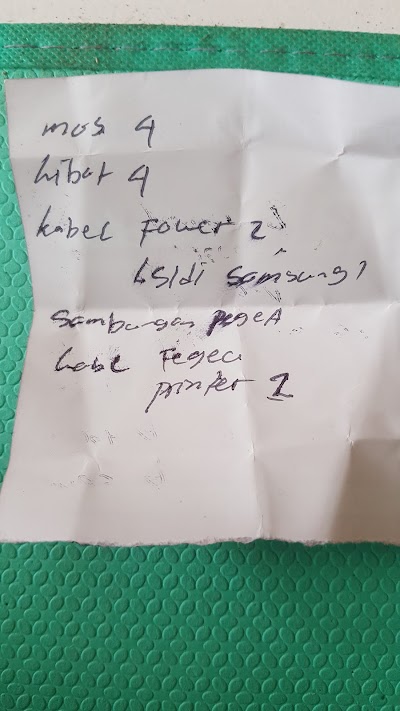 mos 4
hibot 4
kabel Fower 2
LSIdi Samsung 1
Sambungan pegeA
kabl Fegec
printer 1